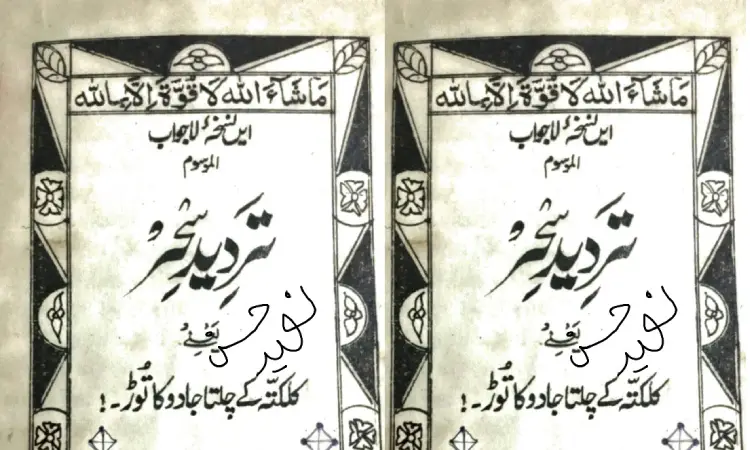 مَاشَآءَ اللّٰه لَا قُوَّةَ اِلَّا بِاللّٰه
ایں نسخۂ لاجواب
الموسوم
تردیدِ سِحر
یعنے
نوید حسن
کلکتّہ کے چلتا جادو کا توُڑ۔!
مَاشَآءَ اللّٰه لَا قُوَّةَ اِلَّا بِاللّٰه
ایں نسخۂ لاجواب
الموسوم
تردیدِ سِحر
یعنے
نوید حسن
کلکتّہ کے چلتا جادو کا توُڑ۔!